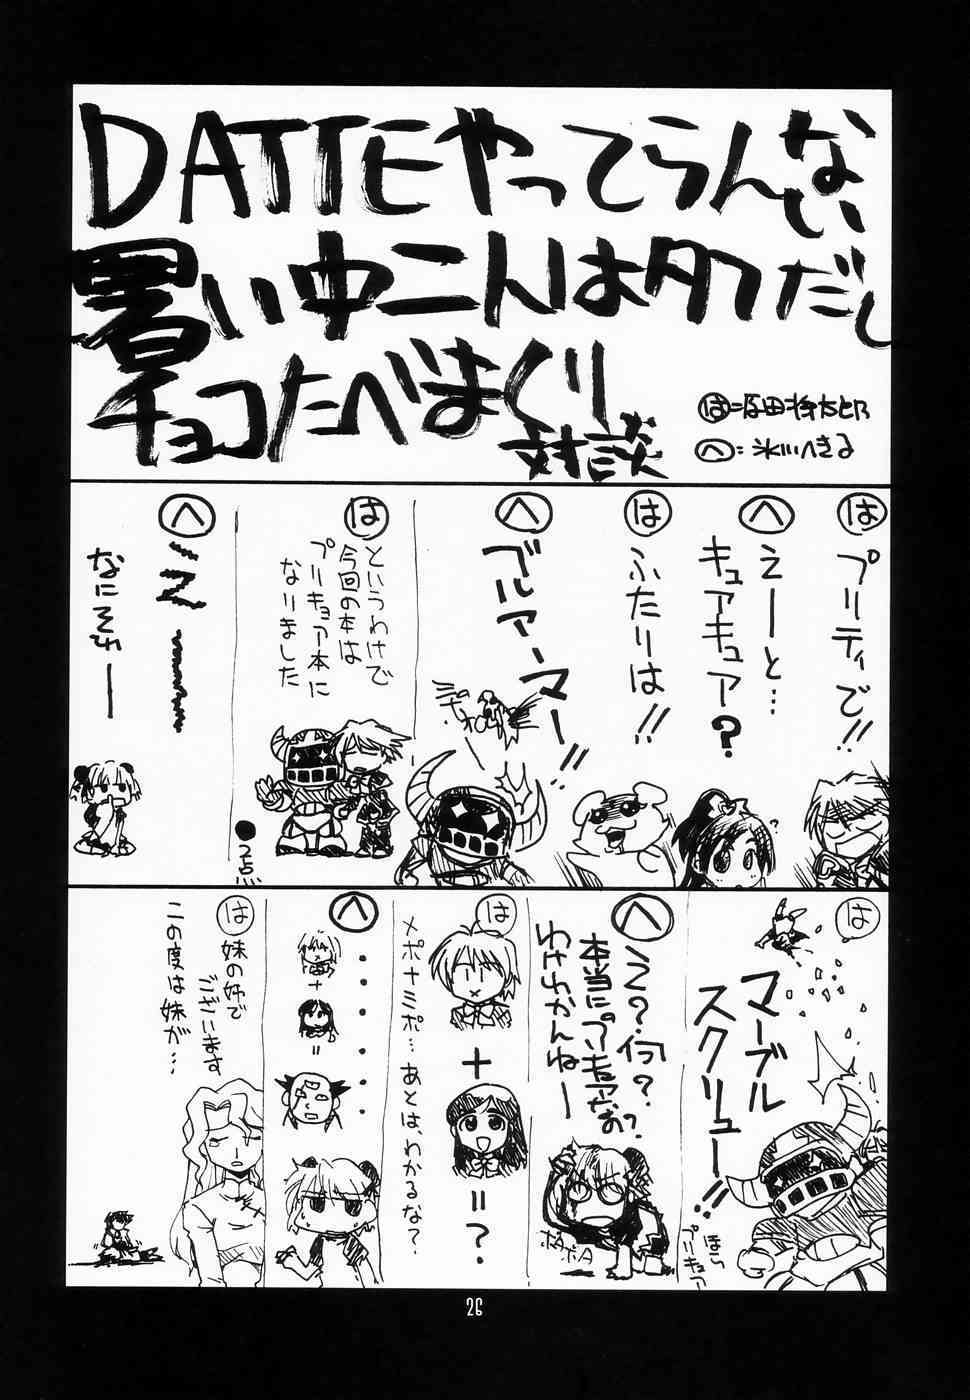 DATTEやってらんない
暑い中こんはタフだし
チョコたべまくり
対談
は=原田将太郎
へ:氷川へきる
は
プリティで!!
へ
えーと…
キュアキュア?
は
ふたりは!!
へ
ブルアーマー!!
は
というわけで
今回の本は
プリキュア本に
なりました
●2点
へ
え〜〜
なにそれー
は
マーブル
スクリュー!!
ほら
プリキュア
へ
え?何?
本当にプリキュアなの?
わけわかんねー
ポタポタ
は
+
=?
メポナミポ…あとは、わかるな?
へ
・・・・・・
+
=
は
妹の好で
ございます
この度は妹が…
26